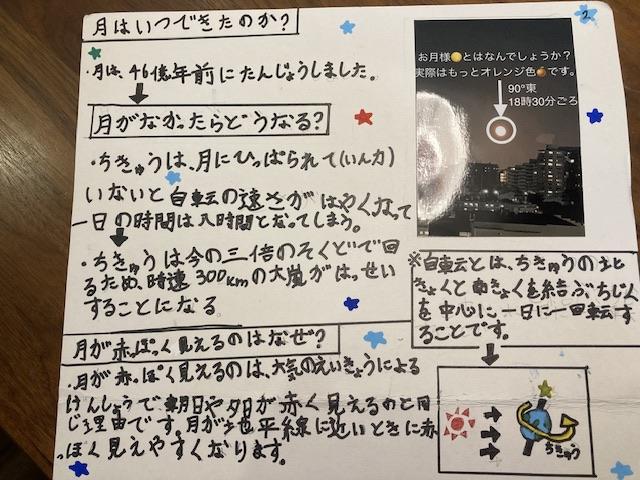 月はいつできたのか?
・月は、46億年前にたんじょうしました。
月がなかったらどうなる?
・ちきゅうは、月にひっぱられて(いん力)
いないと自転の速さがはやくなって
一日の時間は八時間となってしまう。
・ちきゅうは今の三倍のそくどで回
るため、時速300kmの大嵐がはっせい
することになる。
月が赤っぽく見えるのはなぜ?
・月が赤っぽく見えるのは、大気のえいきょうによる
げんしょうで、朝日や夕日が赤く見えるのと同
じ理由です。月が地平線に近いときに赤
っぽく見えやすくなります。
2
お月様🌕とはなんでしょうか?
実際はもっとオレンジ色🟠です。
90°東
18時30分ごろ
※自転とは、ちきゅうの北
きょくと南きょくを結ぶちじく
を中心に一日に一回転す
ることです。
ちきゅう